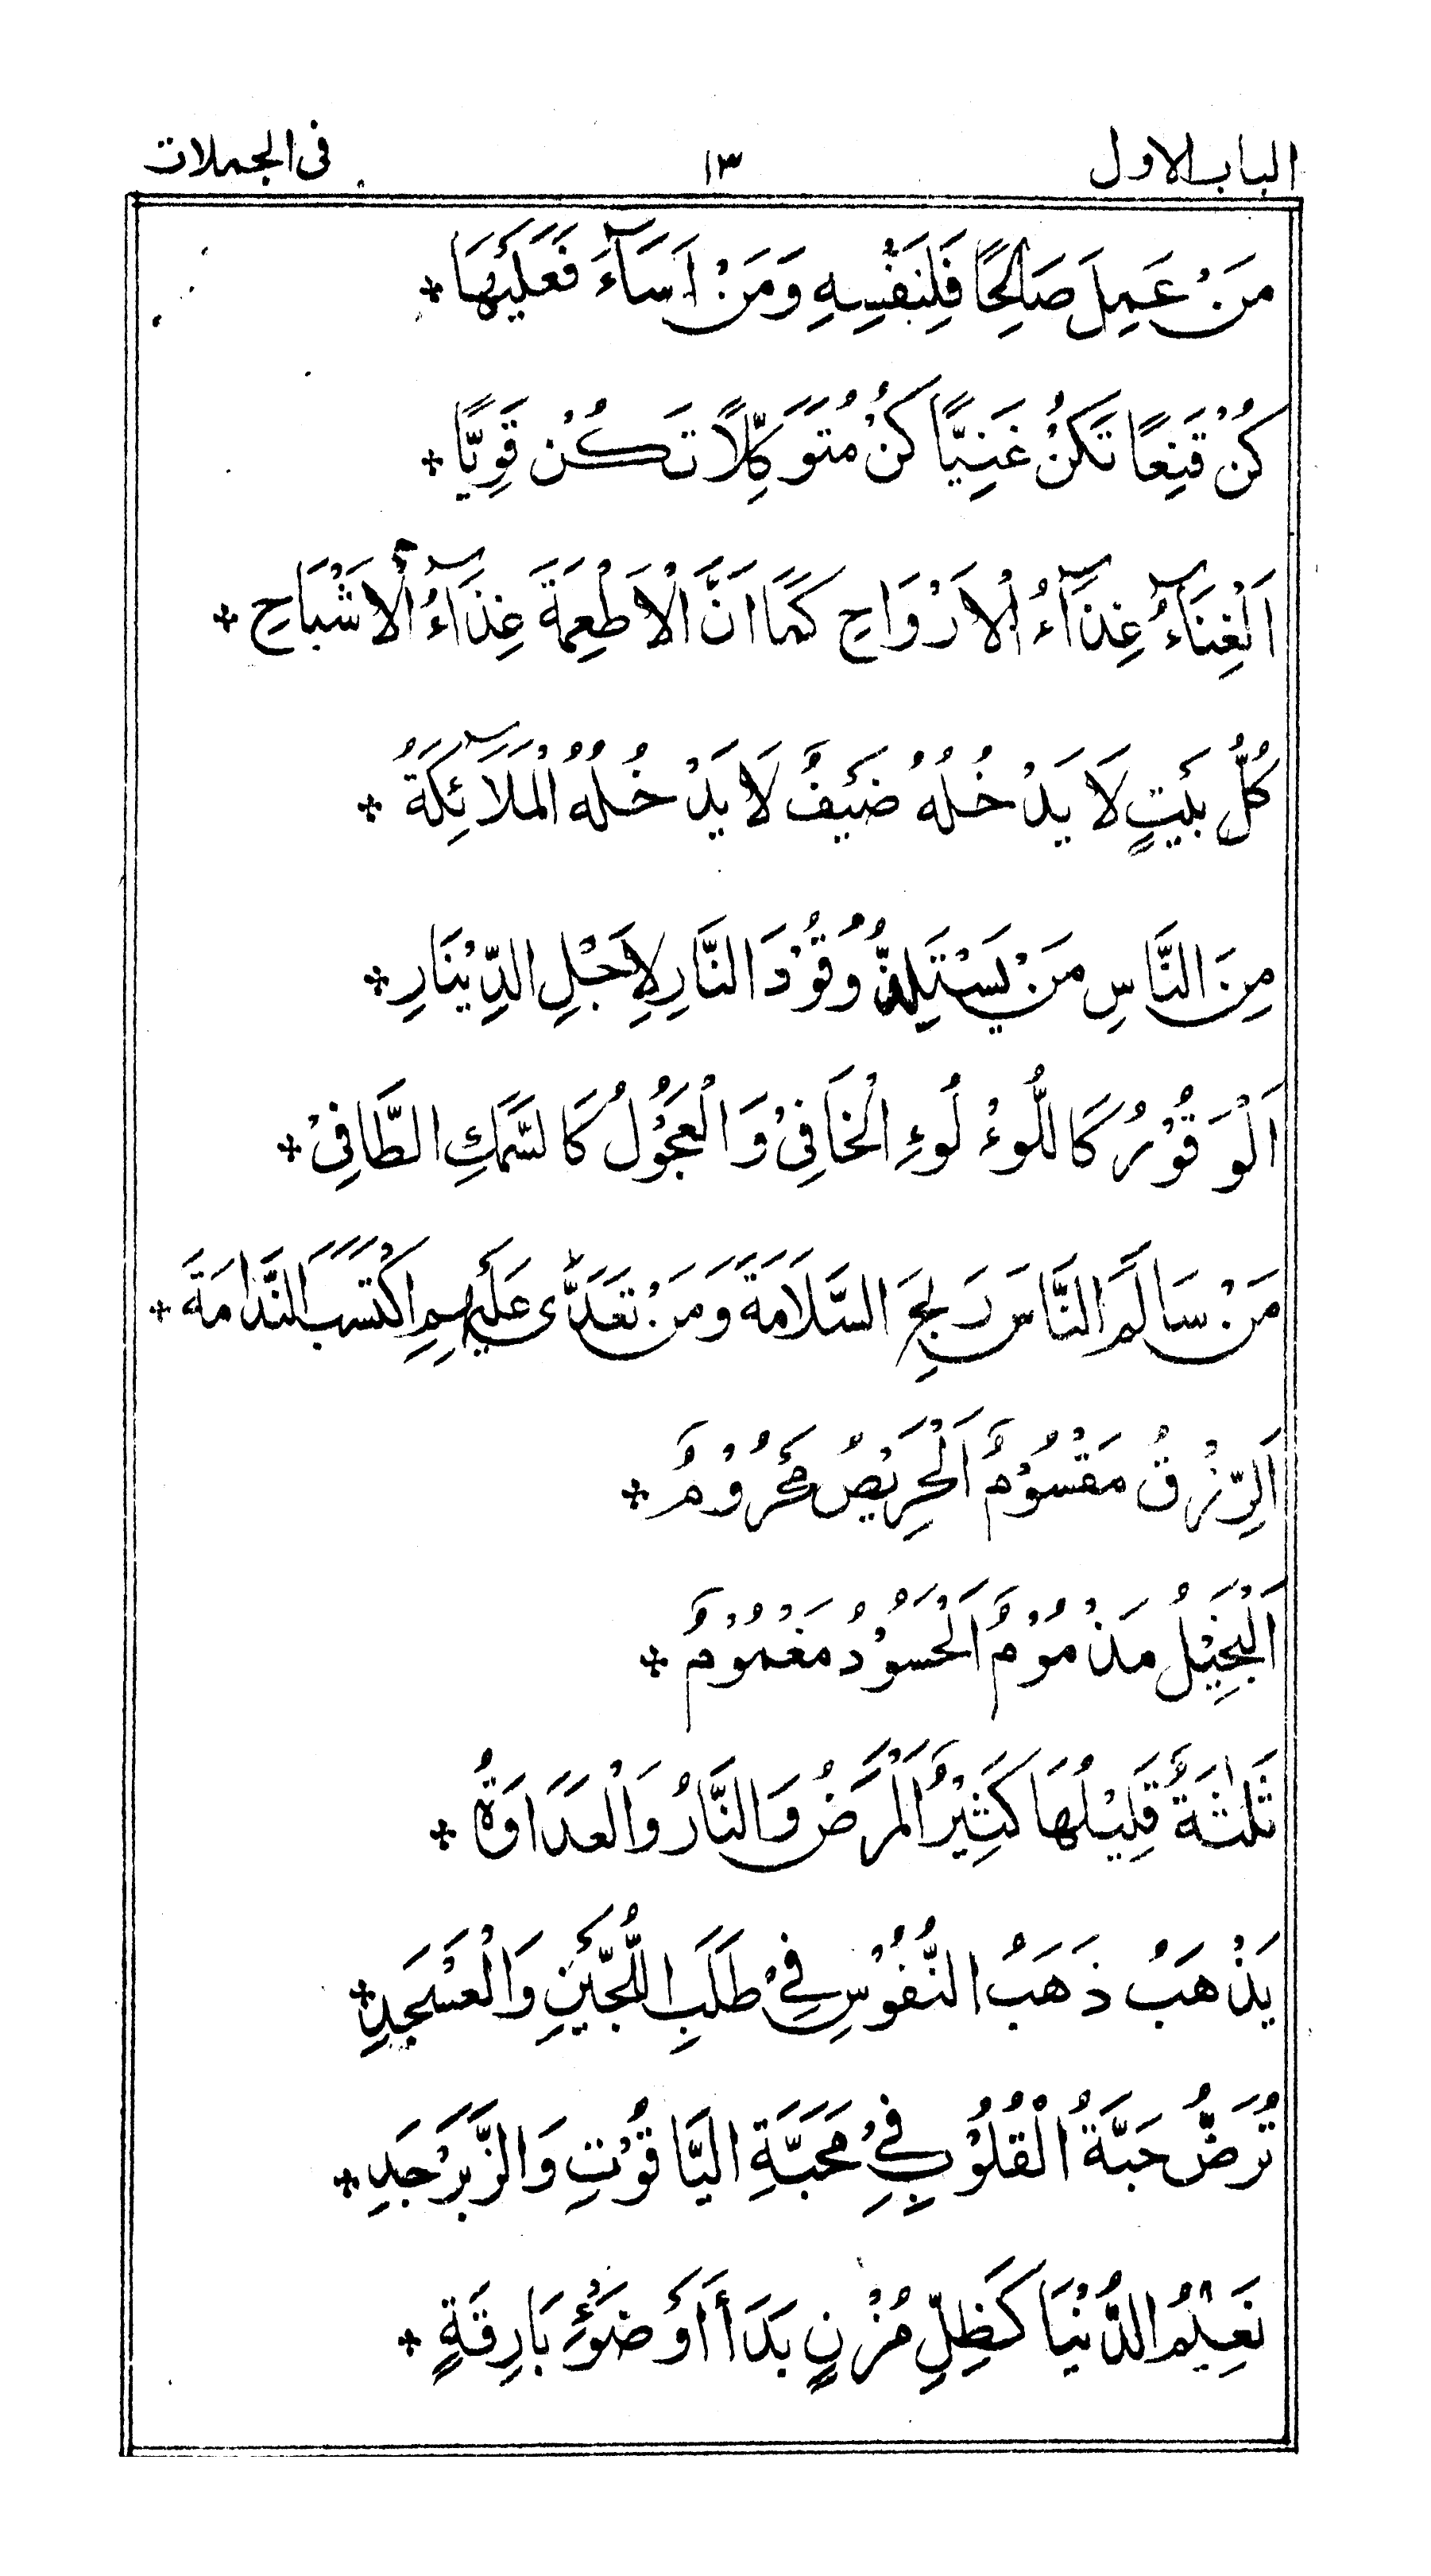 الباب الاول ١٣ فى الجملات
مَنْ عَمِلَ صَالِحًا فَلِنَفْسِهِ وَمَنْ اَسَآءَ فَعَلَيْهَا ❊
كُنْ قَنِعًا تَكُنْ غَنِيًّا كُنْ مُتَوَكِّلًا تَكُنْ قَوِيًّا ❊
اَلْغِنَآءُ غِذَآءُ الْاَرْوَاحِ كَمَا اَنَّ الْاَطْعِمَةَ غِذَآءُ الْاَشْبَاحِ ❊
كُلُّ بَيْتٍ لَا يَدْخُلُهُ ضَيْفٌ لَا يَدْخُلُهُ الْمَلَآئِكَةُ ❊
مِنَ النَّاسِ مَنْ يَسْتَلِذُّ وُقُوْدَ النَّارِ لِاَجْلِ الدِّيْنَارِ ❊
اَلْوَقُوْرُ كَاللُّوءْلُوءِ الْخَافِىْ وَالْعَجُوْلُ كَالسَّمَكِ الطَّافِىْ ❊
مَنْ سَالَمَ النَّاسَ رَبِحَ السَّلَامَةَ وَمَنْ تَعَدّٰى عَلَيْهِمِ اكْتَسَبَ النَّدَامَةَ ❊
اَلرِّزْقُ مَقْسُوْمٌ اَلْحَرِيْصُ مَحْرُوْمٌ ❊
اَلْبَخِيْلُ مَذْمُوْمٌ اَلْحَسُوْدُ مَغْمُوْمٌ ❊
ثَلٰثَةٌ قَلِيْلُهَا كَثِيْرٌ اَلْمَرَضُ وَالنَّارُ وَالْعَدَاوَةُ ❊
يَذْهَبُ ذَهَبُ النُّفُوْسِ فِىْ طَلَبِ اللُّجَيْنِ وَالْعَسْجَدِ ❊
تُرَضُّ حَبَّةُ الْقُلُوْبِ فِىْ مَحَبَّةِ الْيَاقُوْتِ وَالزَّبَرْجَدِ ❊
نَعِيْمُ الدُّنْيَا كَظِلِّ مُزْنٍ بَدَأَ اَوْ ضَوْءِ بَارِقَةٍ ❊